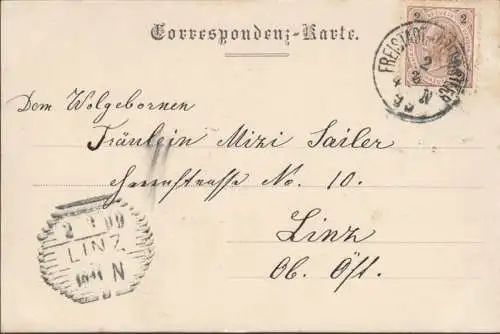 Correspondenz-Karte.
2 2
FREISTADT
2
3
99
Dem Wolgebornen
Fräulein Mizi Sailer
Herrnstrasse No. 10.
Linz
Ob. Öst.
2 3 99
LINZ
N